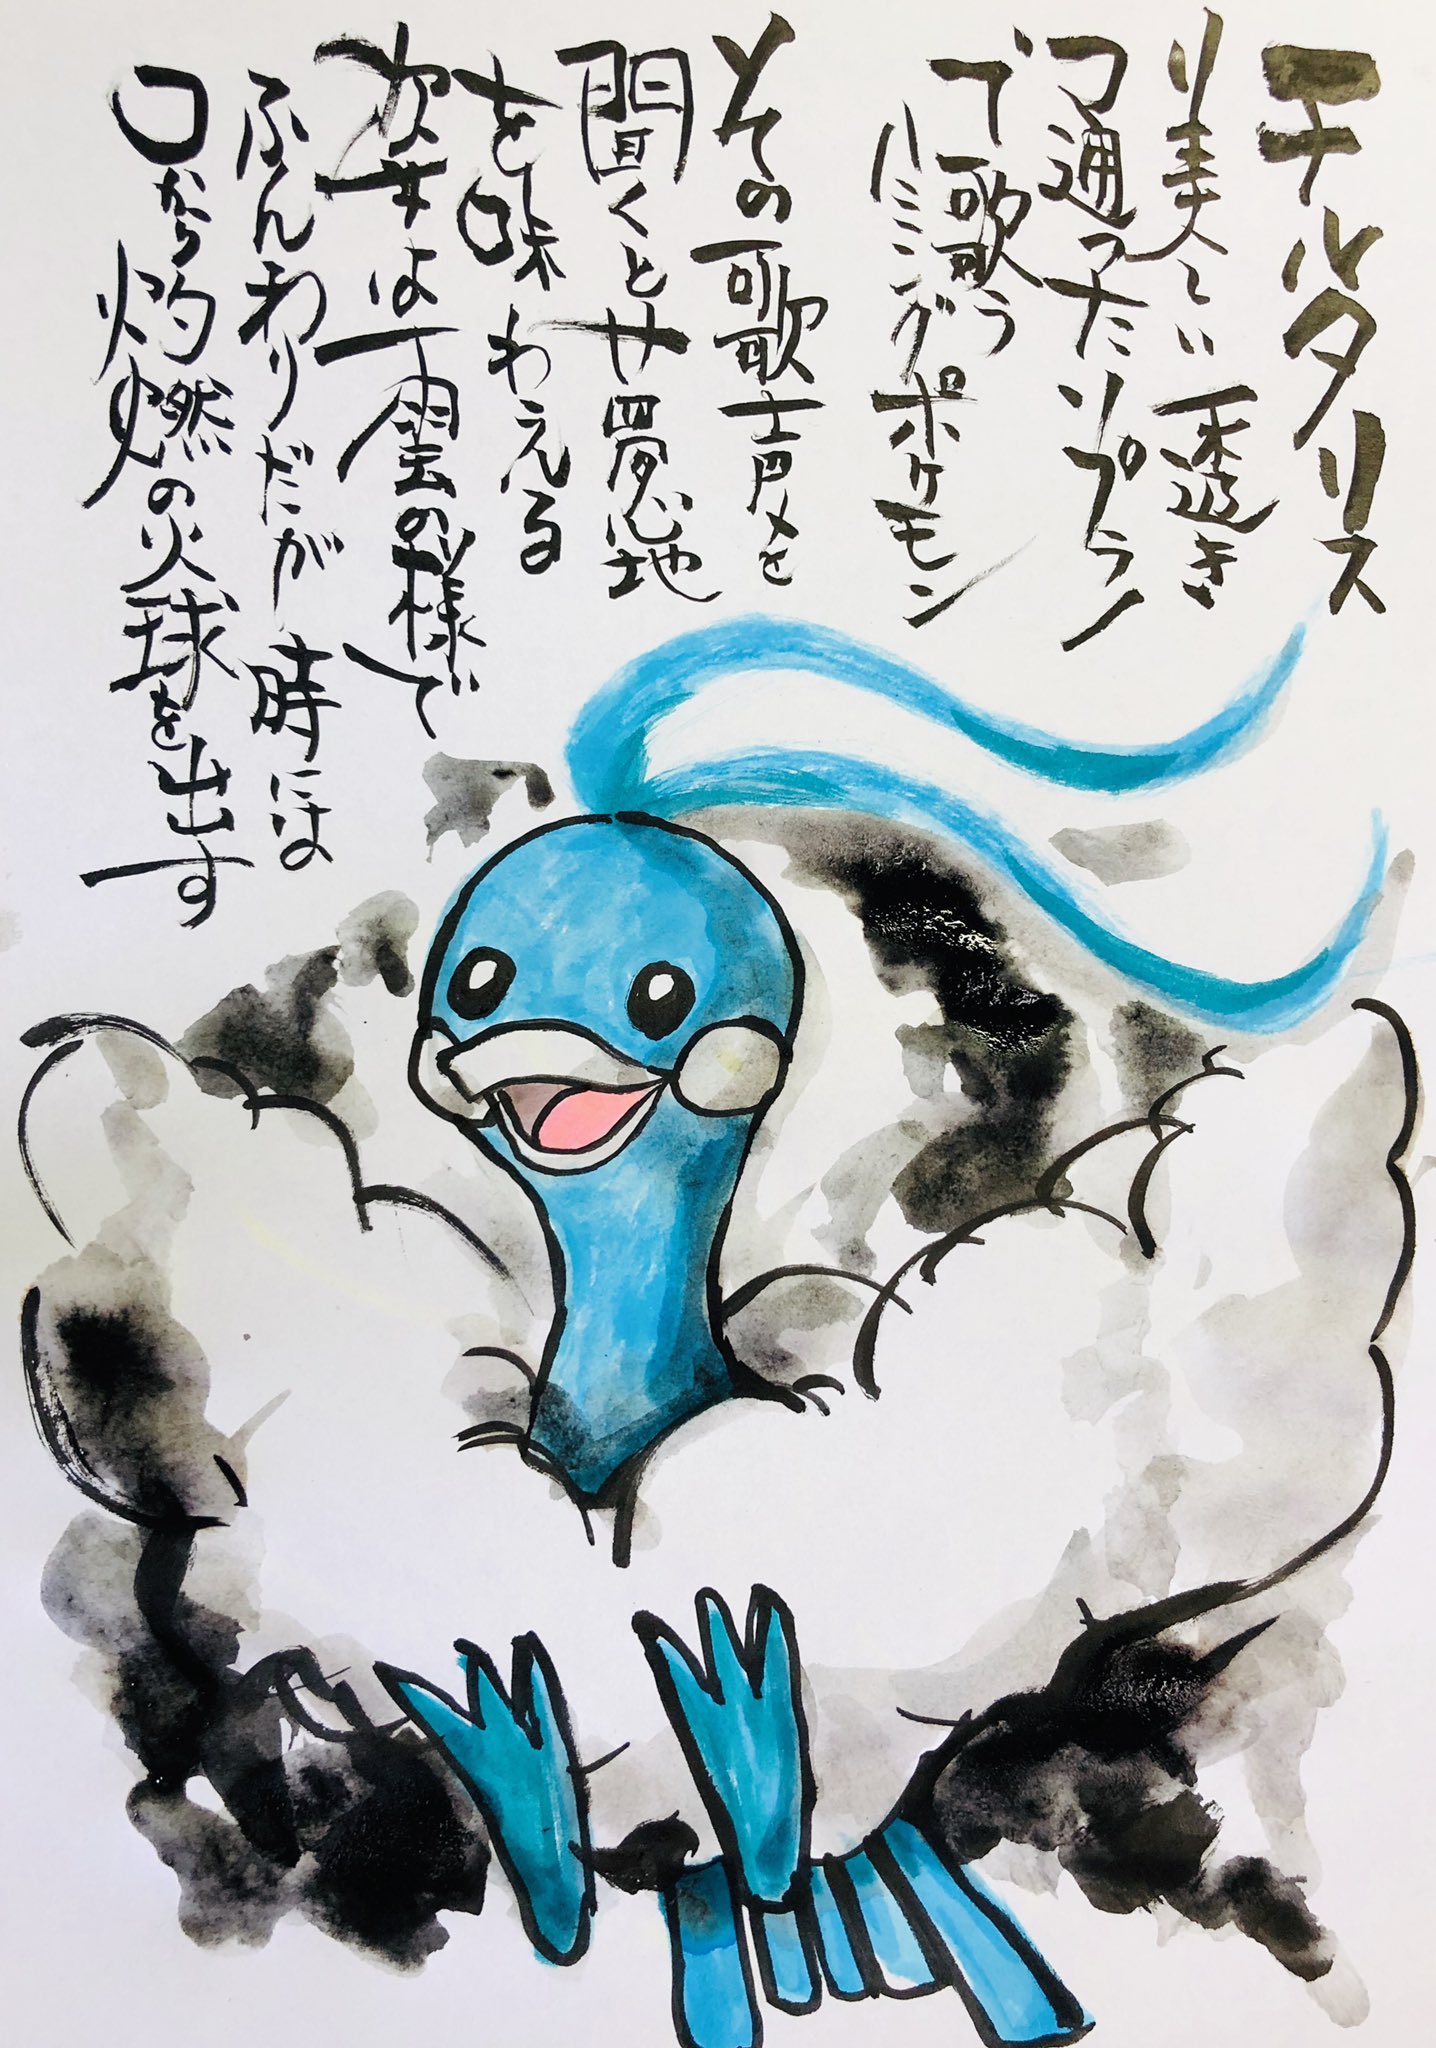 チルタリス
美しい透き
通ったソプラノ
で歌う
ハミングポケモン
その歌声を
聞くと夢心地
を味わえる
姿は雲の様で
ふんわりだが時には
口から灼燃の火球を出す